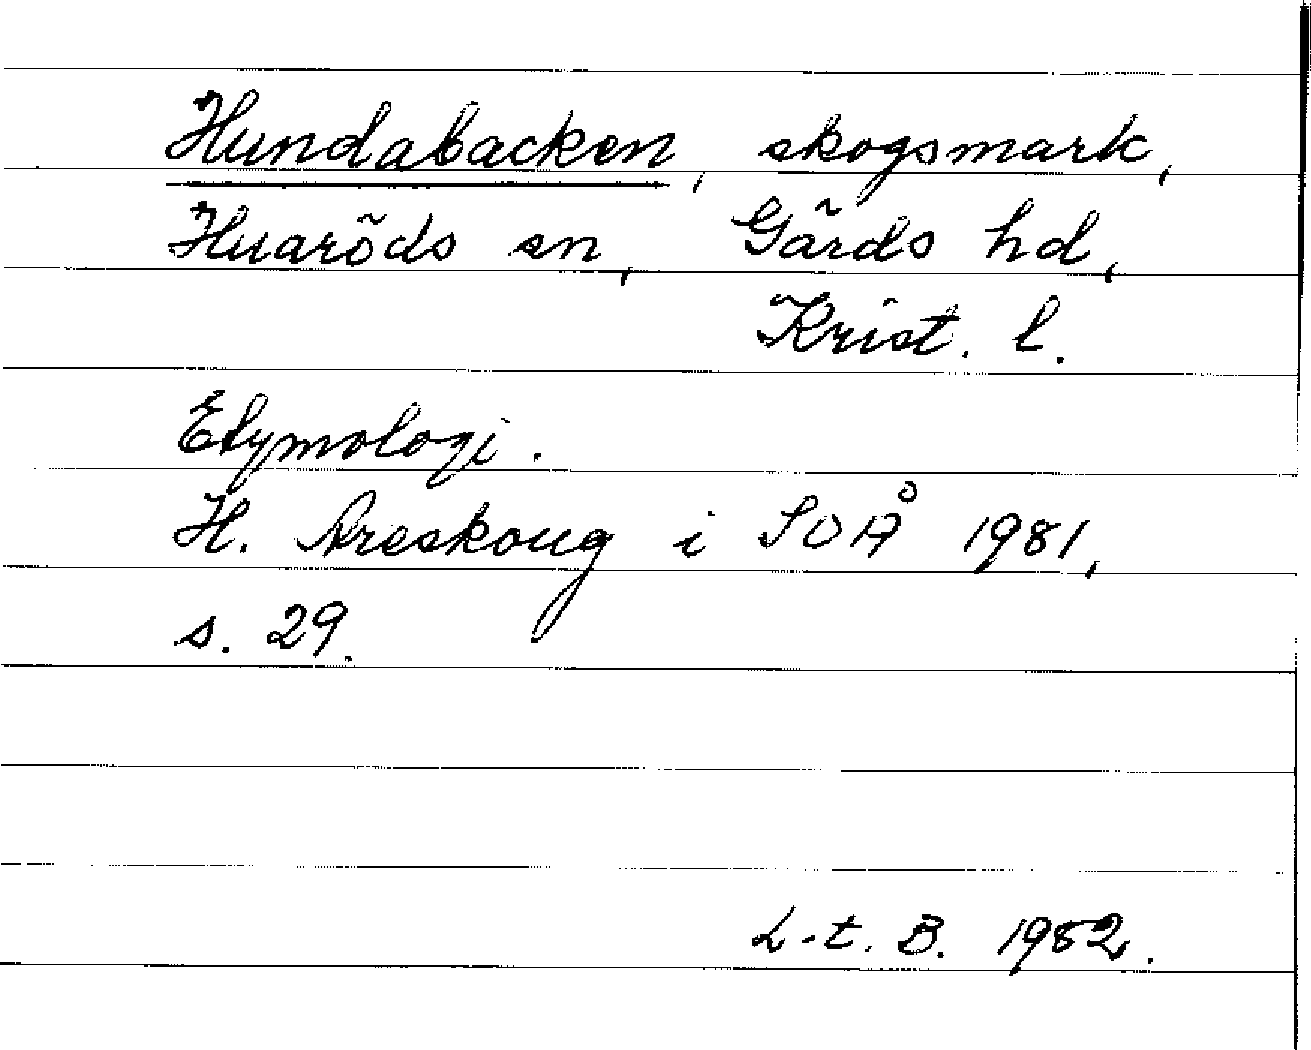 Hundabacken, skogsmark,
Huaröds sn, Gärds hd,
Krist. l.
Etymologi.
H. Areskoug i SOÅ 1981,
s. 29.
L-t. B. 1982.